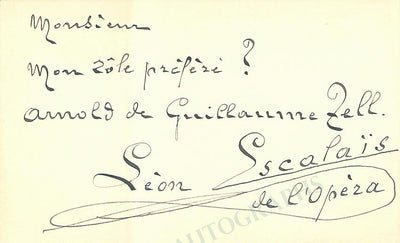 Monsieur
Mon rôle préféré ?
Arnold de Guillaume Tell.
Léon Escalaïs
de l'Opéra
AUTOGRAPHS